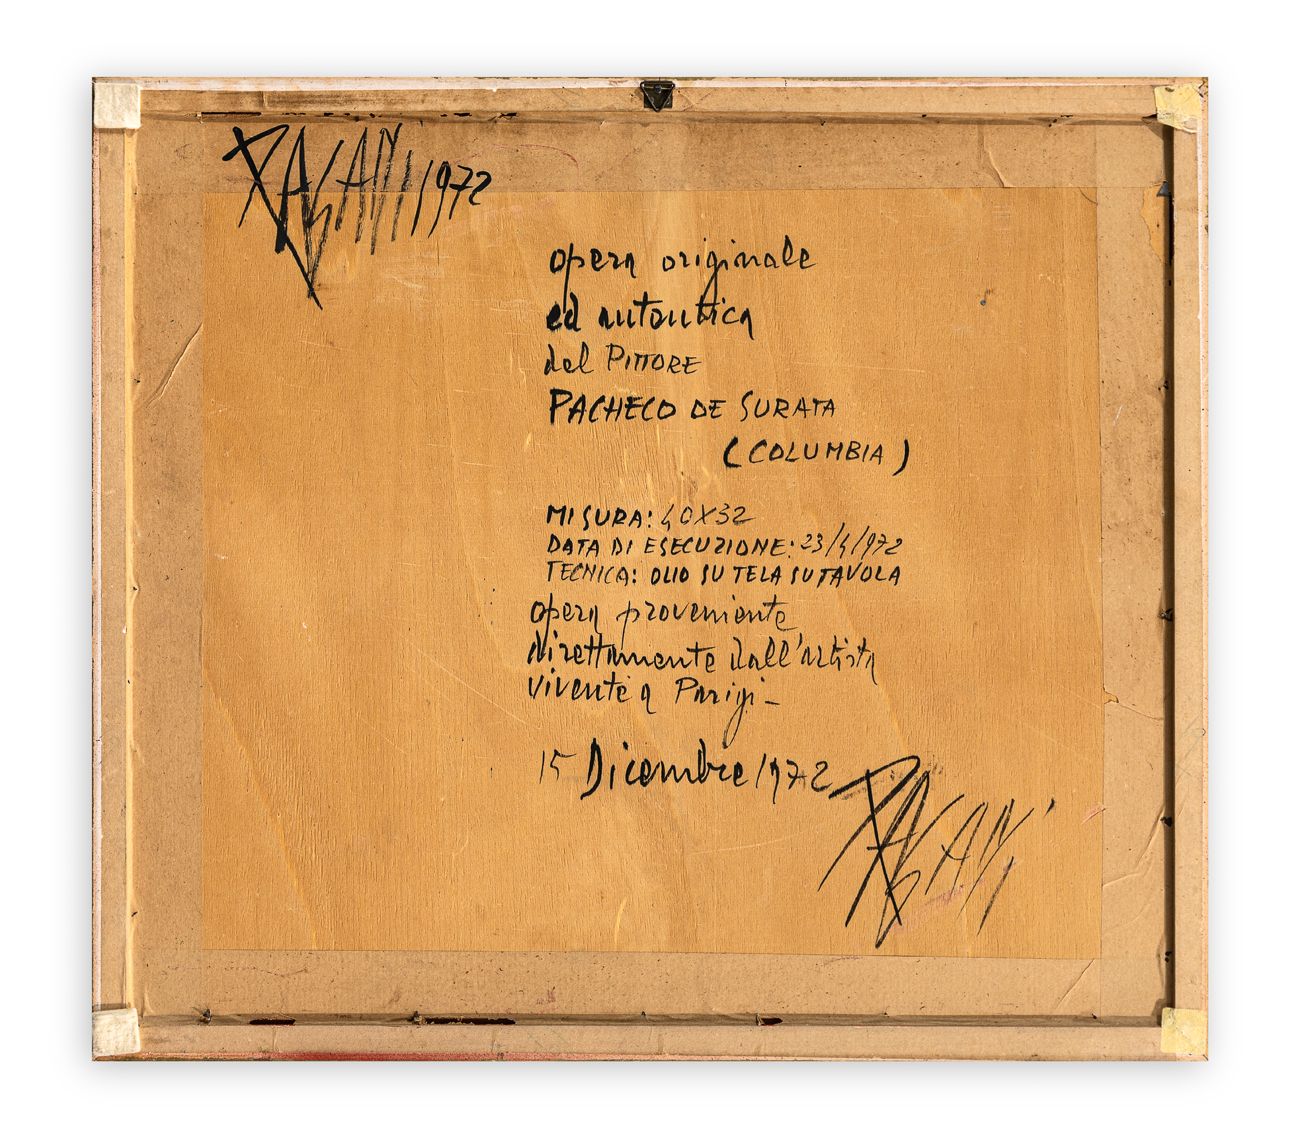 PAGANI 1972
opera originale
ed autentica
del PITTORE
PACHECO DE SURATA
(COLUMBIA)
MISURA: 40X32
DATA DI ESECUZIONE: 23/4/972
TECNICA: OLIO SU TELA SU TAVOLA
opera proveniente
direttamente dall'artista
vivente a Parigi-
15 Dicembre 1972
PAGANI